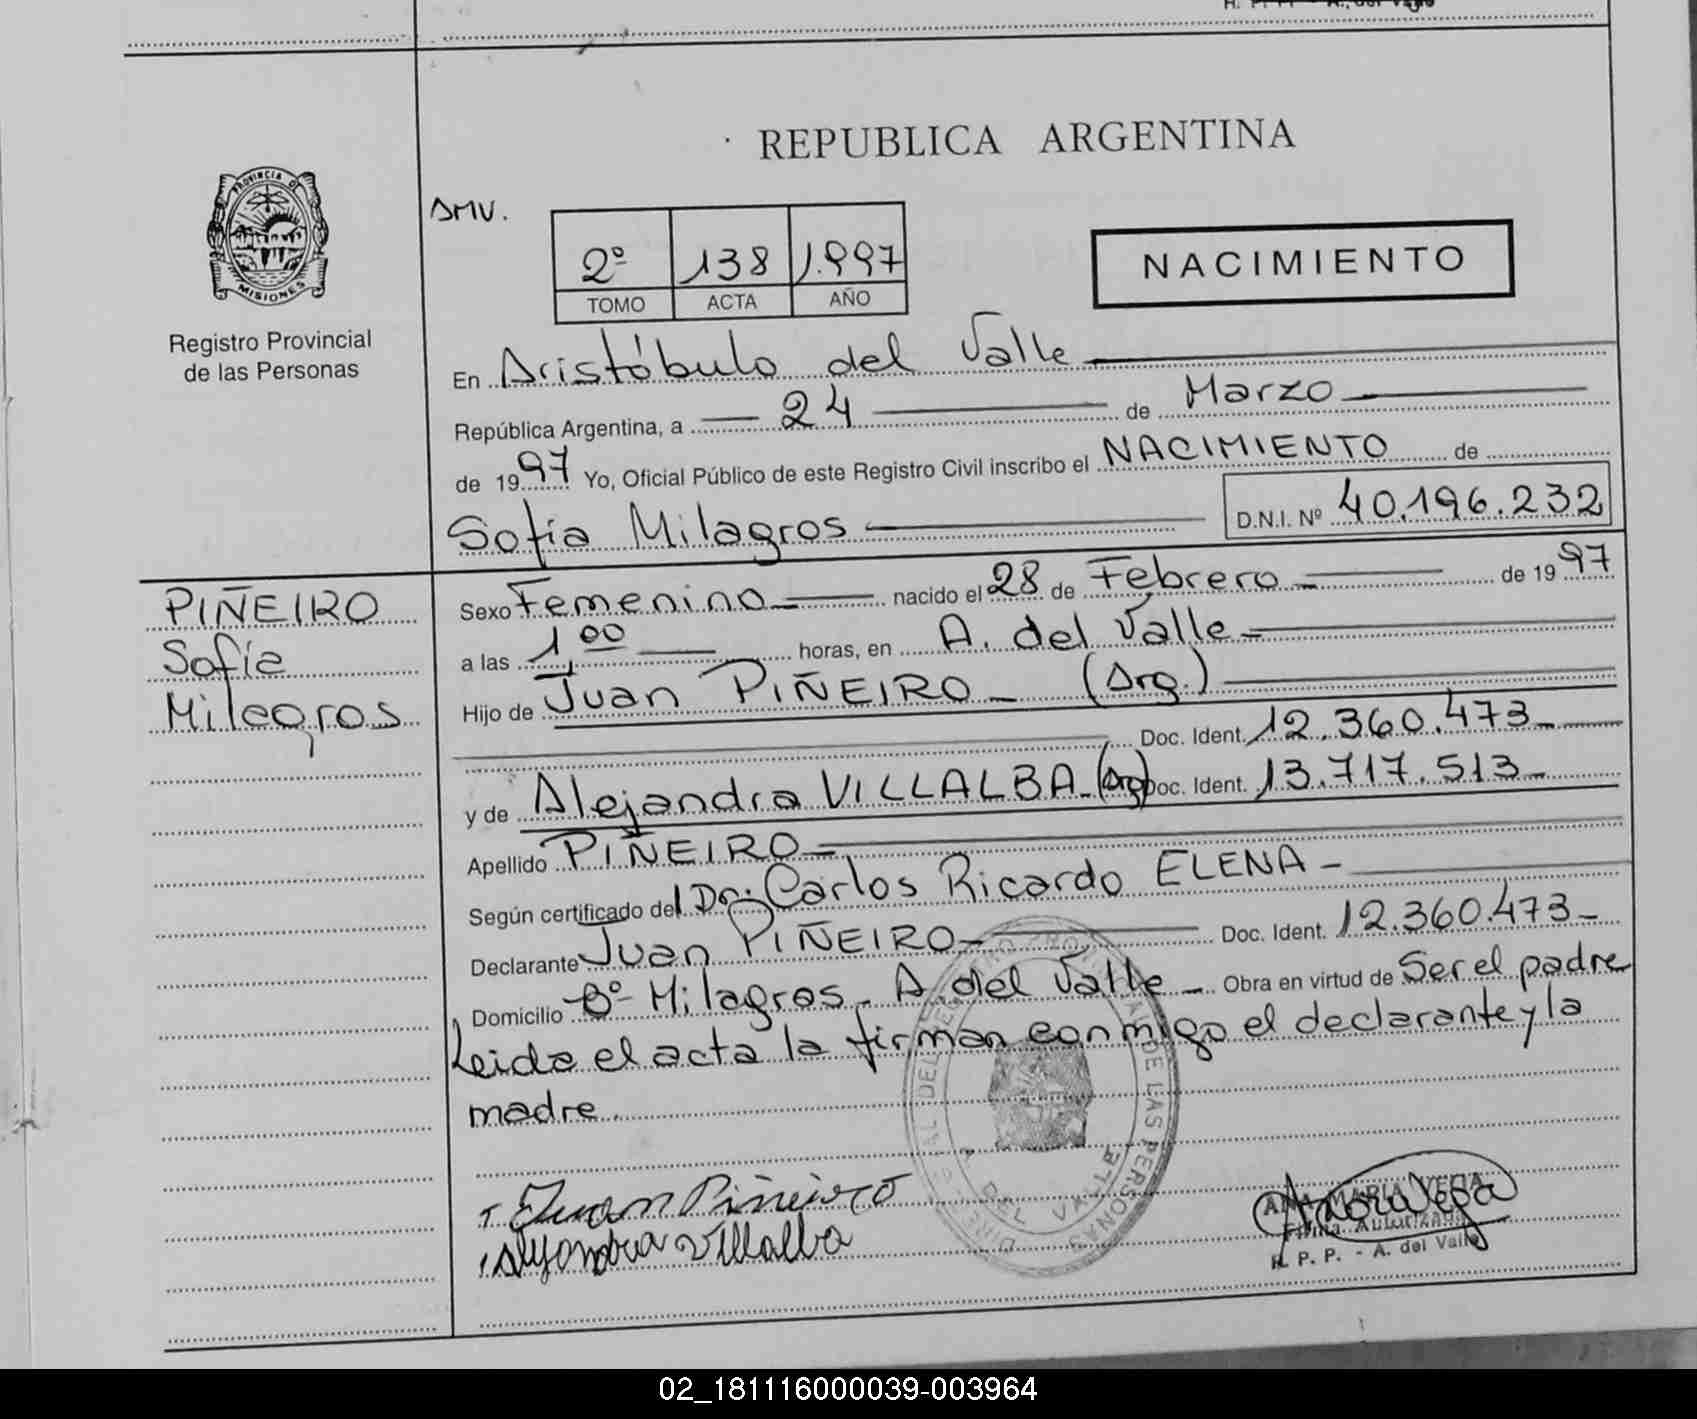 REPUBLICA ARGENTINA
PROVINCIA DE
MISIONES
Registro Provincial
de las Personas
DMV.
2º 138 1.997
TOMO ACTA AÑO
NACIMIENTO
En Aristóbulo del Valle
República Argentina, a 24 de Marzo
de 1997 Yo, Oficial Público de este Registro Civil inscribo el NACIMIENTO de
Sofía Milagros D.N.I. Nº 40.196.232
PIÑEIRO
Sofía
Milagros
Sexo Femenino nacido el 28 de Febrero de 1997
a las 1,00 horas, en A. del Valle
Hijo de Juan PIÑEIRO (Arg.)
Doc. Ident. 12.360.473
y de Alejandra VILLALBA (Arg) Doc. Ident. 13.717.513
Apellido PIÑEIRO
Según certificado del Dr. Carlos Ricardo ELENA
Declarante Juan PIÑEIRO Doc. Ident. 12.360.473
Domicilio Bº Milagros - A. del Valle Obra en virtud de Ser el padre
Leida el acta la firman conmigo el declarante y la
madre.
DE LAS PERSONAS
DEL VALLE
Juan Piñeiro
Alejandra Villalba
ANA MARIA VEGA
Firma Autorizada
R. P. P. - A. del Valle
02_181116000039-003964